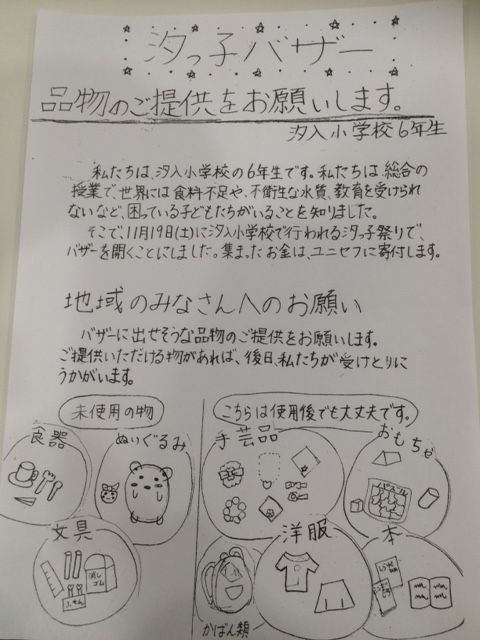 汐っ子バザー
品物のご提供をお願いします。
汐入小学校6年生
私たちは、汐入小学校の6年生です。私たちは、総合の
授業で、世界には食料不足や、不衛生な水質、教育を受けられ
ないなど、困っている子どもたちがいることを知りました。
そこで、11月19日(土)に汐入小学校で行われる汐っ子祭りで、
バザーを開くことにしました。集まったお金は、ユニセフに寄付します。
地域のみなさんへのお願い
バザーに出せそうな品物のご提供をお願いします。
ご提供いただける物があれば、後日、私たちが受けとりに
うかがいます。
未使用の物
こちらは使用後でも大丈夫です。
食器
ぬいぐるみ
手芸品
おもちゃ
文具
消しゴム
ふせん
かばん類
洋服
本